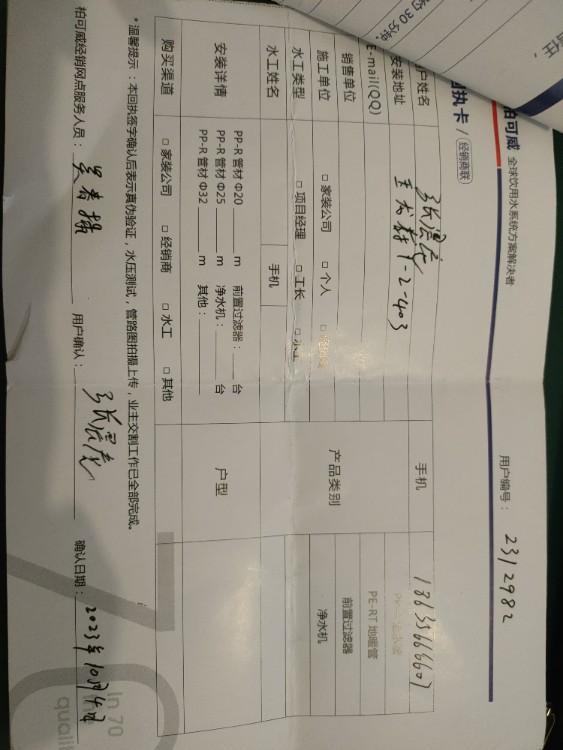 约30分钟
责任，
柏可威 全球饮用水系统方案解决者
执卡 / 经销商联
用户编号： 2312982
户姓名 手机
安装地址 1-2-403
E-mail(QQ) PE-RT 地暖管
销售单位 产品类别 前置过滤器
施工单位 □ 家装公司 □ 个人 净水机
水工类型 □ 项目经理 □ 工长 □ 水工
水工姓名 手机
安装详情 PP-R 管材 Φ20 m 前置过滤器： 台 户型
PP-R 管材 Φ25 m 净水机： 台
PP-R 管材 Φ32 m 其他：
购买渠道 □ 家装公司 □ 经销商 □ 水工 □ 其他
*温馨提示：本回执签字确认后表示真伪验证，水压测试，管路图拍摄上传，业主交割工作已全部完成。
柏可威经销网点服务人员： 用户确认： 确认日期： 2023年10月4日
In 70
the
quali